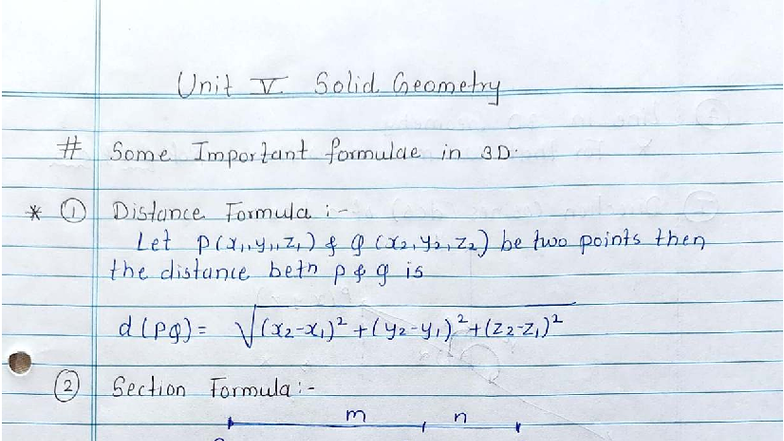 Unit V Solid Geometry
# Some Important formulae in 3D.
* ① Distance Formula :-
Let P(x₁,y₁,z₁) & Q (x₂,y₂,z₂) be two points then
the distance betn P & Q is
d(PQ) = √(x₂-x₁)² + (y₂-y₁)² + (z₂-z₁)²
② Section Formula :-
m n